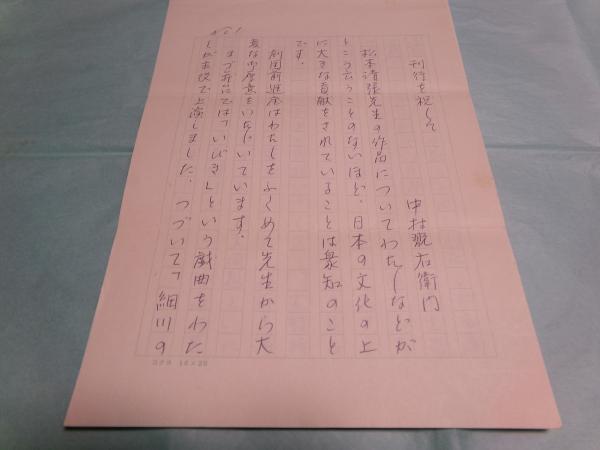 No 1
刊行を祝して
中村翫右衛門
松本清張先生の作品についてわたしなどが
とこう云うことのないほど、日本の文化の上
に大きな貢献をされていることは衆知のこと
です。
劇団前進座はわたしをふくめて先生から大
変な御厚意をいただいています。
まづ作品では「いびき」という戯曲をわた
しが主役で上演しました。つづいて「細川の
コクヨ